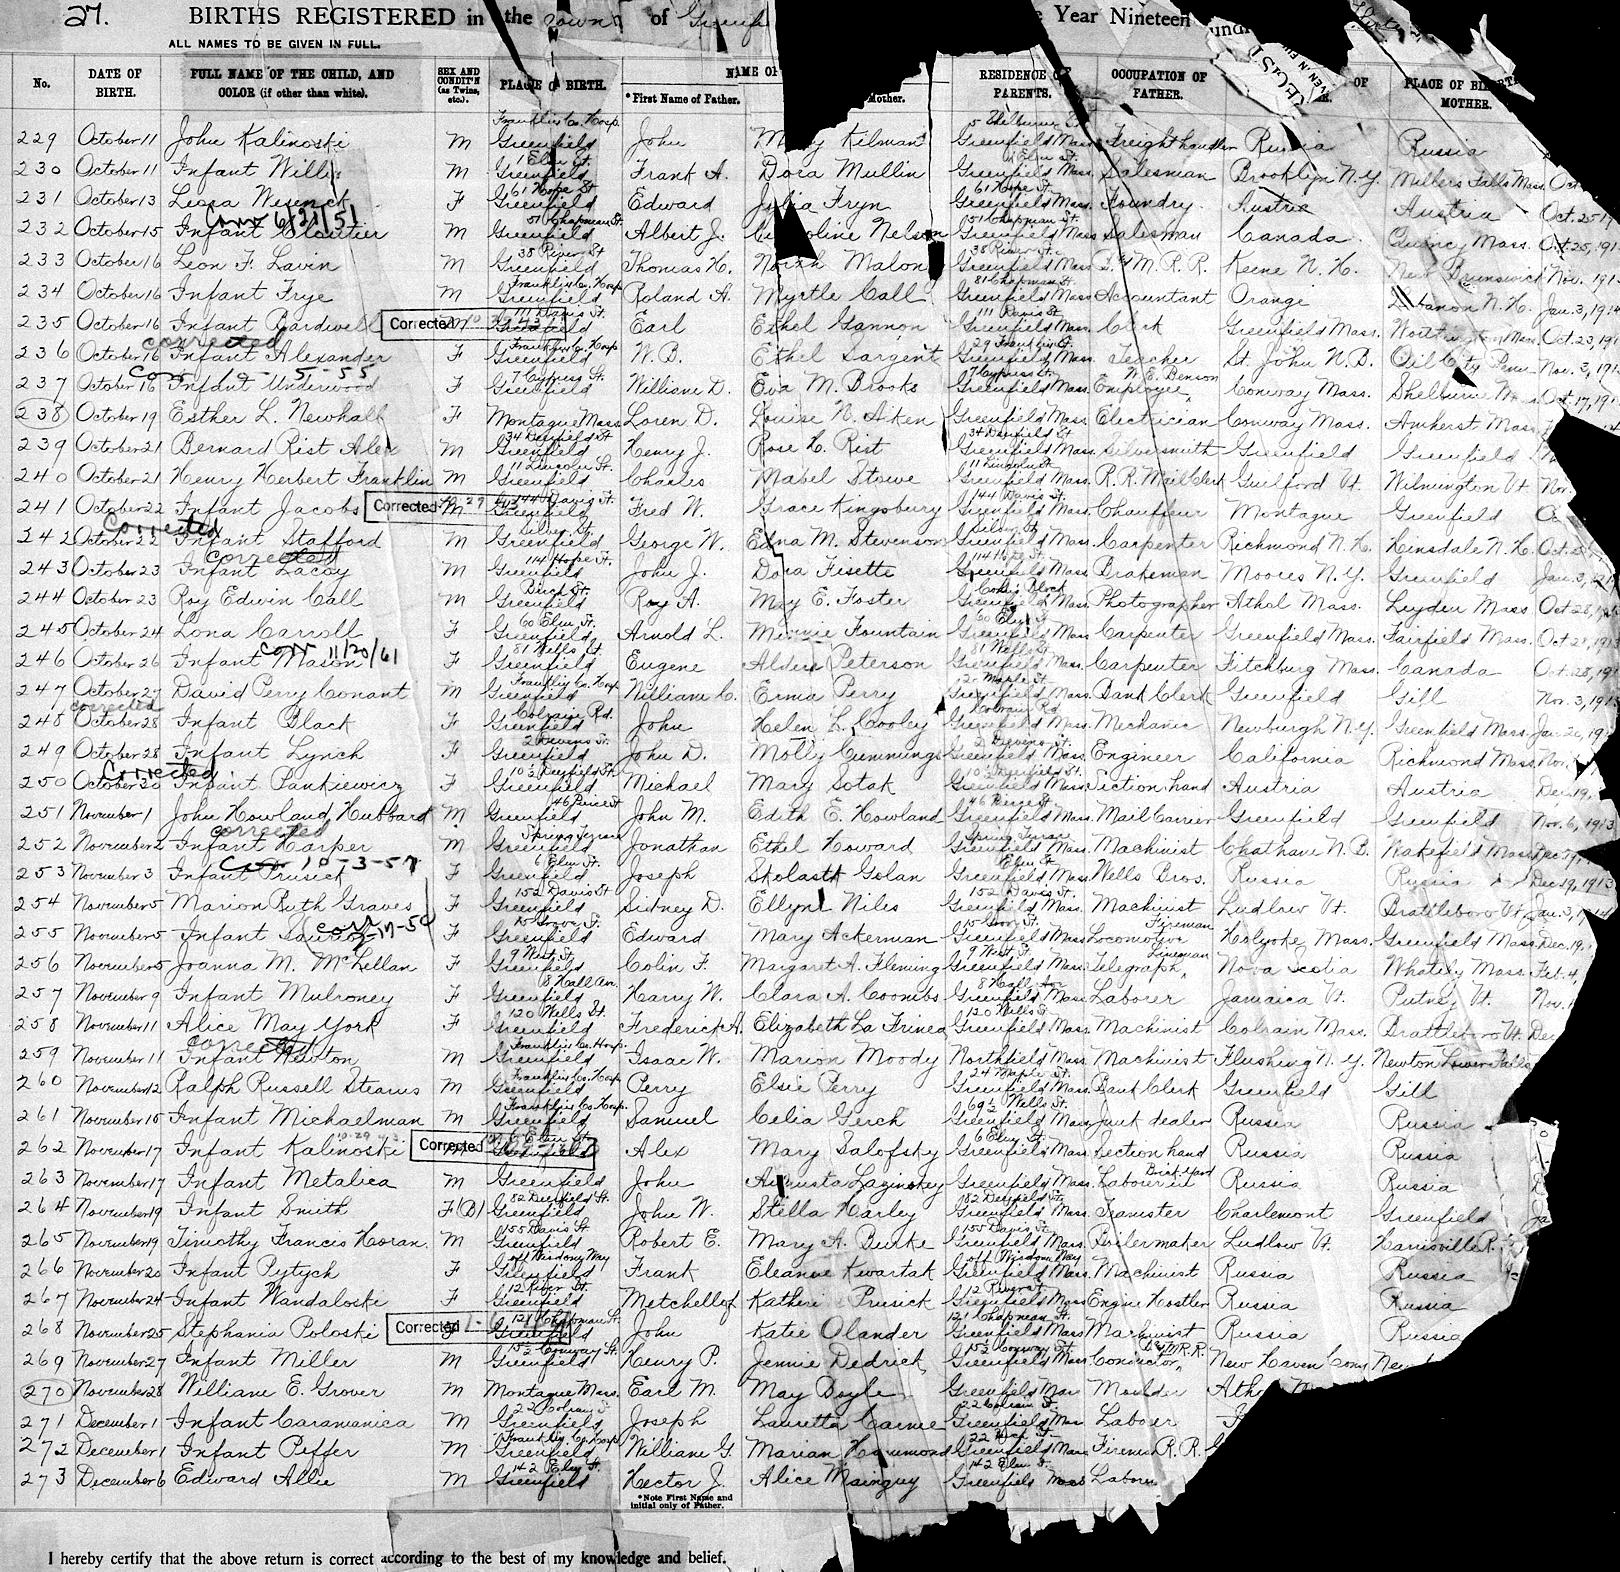 27. BIRTHS REGISTERED in the Town of Greenf Year Nineteen
ALL NAMES TO BE GIVEN IN FULL.
No. DATE OF BIRTH. FULL NAME OF THE CHILD, AND COLOR (if other than white). SEX AND CONDIT'N (as Twins, etc.). PLACE OF BIRTH. NAME OF *First Name of Father. Mother. RESIDENCE OF PARENTS. OCCUPATION OF FATHER. OF PLACE OF BIRTH MOTHER.
229 October 11 John Kalinoski M Franklin Co. Hosp. Greenfield John Mary Kilman 5 Shelburne Greenfield Mass Freight handler Russia Russia
230 October 11 Infant Willis M 1 Elm St. Greenfield Frank A. Dora Mullin 1 Elm St. Greenfield Mass. Salesman Brooklyn N.Y. Millers Falls Mass. Oct
231 October 13 Leora Wesenck F 61 Hope St Greenfield Edward Julia Fryn 61 Hope St. Greenfield Mass. Foundry Austria Austria Oct. 25
Corr 6/21/51
232 October 15 Infant Cloutier M 51 Chapman St. Greenfield Albert J. Caroline Nelson 51 Chapman St. Greenfield Mass Salesman Canada Quincy Mass. Oct 25, 191
233 October 16 Leon F. Lavin M 38 River St Greenfield Thomas H. Norah Malon 38 River St. Greenfield Mass B & M. R. R. Keene N. H. New Brunswick Nov. 191
234 October 16 Infant Frye M Franklin Co. Hosp Greenfield Roland A. Myrtle Call 81 Chapman St. Greenfield Mass. Accountant Orange Lebanon N. H. Jan. 3, 1914
235 October 16 Infant Bardwell Corrected M 111 Davis St. Greenfield Earl Ethel Gannon 111 Davis St Greenfield Mass. Clerk Greenfield Mass. Worthington Mass Oct. 23, 191
corrected
236 October 16 Infant Alexander F Franklin Co. Hosp Greenfield W. B. Ethel Sargent 29 Franklin St Greenfield Mass. Teacher St. John N.B. Oil City Penn Nov. 3, 191
Corr 5-55
237 October 16 Infant Underwood F 7 Cypress St. Greenfield William D. Eva M. Brooks 7 Cypress St. Greenfield Mass. Employee W. E. Benson Conway Mass. Shelburne Oct. 17, 191
238 October 19 Esther L. Newhall F Montague Mass. Loren D. Louise N. Aiken Greenfield Mass. Electrician Conway Mass. Amherst Mass.
239 October 21 Bernard Rist Alex M 34 Deerfield St Greenfield Henry J. Rose H. Rist 34 Deerfield St. Greenfield Mass. Silversmith Greenfield Greenfield
240 October 21 Henry Herbert Franklin M 11 Lincoln St. Greenfield Charles Mabel Stowe 11 Lincoln St Greenfield Mass. R. R. Mail Clerk Guilford Vt. Wilmington Vt. Nov.
241 October 22 Infant Jacobs Corrected M 144 Davis St. Greenfield Fred W. Grace Kingsbury 144 Davis St. Greenfield Mass. Chauffeur Montague Greenfield
Corrected
242 October 22 Infant Stafford M Silver St. Greenfield George W. Edna M. Stevenson Silver St. Greenfield Mass. Carpenter Richmond N. H. Hinsdale N. H. Oct.
corrected
243 October 23 Infant Lacoy M 114 Hope St. Greenfield John J. Dora Fisette 114 Hope St. Greenfield Mass. Brakeman Moores N.Y. Greenfield Jan. 3,
244 October 23 Roy Edwin Call M Birch St. Greenfield Roy A. May E. Foster Block Greenfield Mass. Photographer Athol Mass. Leyden Mass Oct 28,
245 October 24 Lona Carroll F 60 Elm St. Greenfield Arnold L. Minnie Fountain 60 Elm St Greenfield Mass. Carpenter Greenfield Mass. Fairfield Mass. Oct 28, 1913
Corr 11/20/61
246 October 26 Infant Mason F 81 Wells St Greenfield Eugene Aldera Peterson 81 Wells St Greenfield Mass. Carpenter Fitchburg Mass. Canada Oct. 28, 191
247 October 27 David Perry Conant M Franklin Co. Hosp Greenfield William C. Erma Perry Maple St Greenfield Mass. Bank Clerk Greenfield Gill Nov. 3, 191
corrected
248 October 28 Infant Black F Colrain Rd. Greenfield John Helen L. Cooley Colrain Rd Greenfield Mass. Mechanic Newburgh N.Y. Greenfield Mass. Jan
249 October 28 Infant Lynch F 2 Stevens St. Greenfield John D. Molly Cummings 2 Stevens St. Greenfield Mass. Engineer California Richmond Mass. Nov.
Corrected
250 October 30 Infant Pankiewicz F 10½ Deerfield St. Greenfield Michael Mary Sotak 10½ Deerfield St. Greenfield Mass. Section hand Austria Austria Dec. 19,
251 November 1 John Howland Hubbard M 46 Pierce St Greenfield John M. Edith E. Howland 46 Pierce St Greenfield Mass. Mail Carrier Greenfield Greenfield Nov. 6, 1913
corrected
252 November 2 Infant Harper M Spring Terrace Greenfield Jonathan Ethel Howard Spring Terrace Greenfield Mass. Machinist Chatham N. B. Wakefield Mass.
Corr 10-3-57
253 November 3 Infant Prusick F 6 Elm St. Greenfield Joseph Skolastk Golan Elm St Greenfield Mass. Wells Bros. Russia Russia Dec 19, 1913
254 November 5 Marion Ruth Graves F 152 Davis St Greenfield Sidney D. Ellyne Niles 152 Davis St. Greenfield Mass. Machinist Ludlow Vt. Brattleboro Vt. Jan. 3, 1914
255 November 5 Infant F 15 Grove St. Greenfield Edward Mary Ackerman 15 Grove St. Greenfield Mass Locomotive Fireman Holyoke Mass. Greenfield Mass. Dec. 19,
256 November 5 Joanna M. McLellan F 9 West St. Greenfield Colin F. Margaret A. Fleming 9 West St. Greenfield Mass. Telegraph Lineman Nova Scotia Whately Mass. Feb. 4,
257 November 9 Infant Mulroney F 8 Hall Av. Greenfield Harry W. Clara A. Coombs 8 Hall Av Greenfield Mass. Laborer Jamaica Vt. Putney Vt. Nov.
258 November 11 Alice May York F 120 Wells St. Greenfield Frederick A. Elizabeth La Frinea 120 Wells St Greenfield Mass. Machinist Colrain Mass. Brattleboro Vt. Dec
corrected
259 November 11 Infant Newton M Franklin Co. Hosp. Greenfield Isaac W. Marion Moody Northfield Mass. Machinist Flushing N. Y. Newton Lower Falls
260 November 12 Ralph Russell Stearns M Franklin Co. Hosp Greenfield Perry Elsie Perry 24 Maple St. Greenfield Mass. Bank Clerk Greenfield Gill
261 November 15 Infant Michaelman M Franklin Co Hosp. Greenfield Samuel Celia Gerch 69½ Wells St. Greenfield Mass Junk dealer Russia Russia
262 November 17 Infant Kalinoski Corrected 6 Elm St. Greenfield Alex Mary Salofsky 6 Elm St. Greenfield Mass. Section hand Russia Russia
263 November 17 Infant Metalica M Greenfield John Augusta Lazinskey Greenfield Mass. Labourer Brick Yard Russia Russia
264 November 19 Infant Smith F (B) 82 Deerfield St. Greenfield John W. Stella Harley 82 Deerfield St Greenfield Mass. Teamster Charlemont Greenfield
265 November 19 Timothy Francis Horan. M 155 Davis St Greenfield Robert E. Mary A. Burke 155 Davis St. Greenfield Mass. Boilermaker Ludlow Vt. Harrisville R.
266 November 20 Infant Pytych F off Wisdom Way Greenfield Frank Eleanne Kwartak off Wisdom Way Greenfield Mass. Machinist Russia Russia
267 November 24 Infant Wandaloski F 12 River St. Greenfield Metchellof Katheri Prusick 12 River St Greenfield Mass Engine Hostler Russia Russia
268 November 25 Stephania Poloski Corrected F 121 Chapman St. Greenfield John Katie Olander 121 Chapman St. Greenfield Mass Machinist Russia Russia
269 November 27 Infant Miller M 15½ Conway St. Greenfield Henry P. Jennie Dedrick 15½ Conway St. Greenfield Mass Conductor B & M R.R. New Haven Conn New
270 November 28 William E. Grover M Montague Mass. Earl M. May Doyle Greenfield Mass Moulder Ath
271 December 1 Infant Caramanica M 22 Colrain St Greenfield Joseph Lauretta Carme 22 Colrain St. Greenfield Mass Labour
272 December 1 Infant Peffer M Franklin Co. Hosp Greenfield William G. Marian Hammond 22 St Greenfield Mass Fireman R. R.
273 December 6 Edward Allie M 142 Elm St. Greenfield Hector J. Alice Mainguy 142 Elm St. Greenfield Mass Laborer
*Note First Name and initial only of Father.
I hereby certify that the above return is correct according to the best of my knowledge and belief.